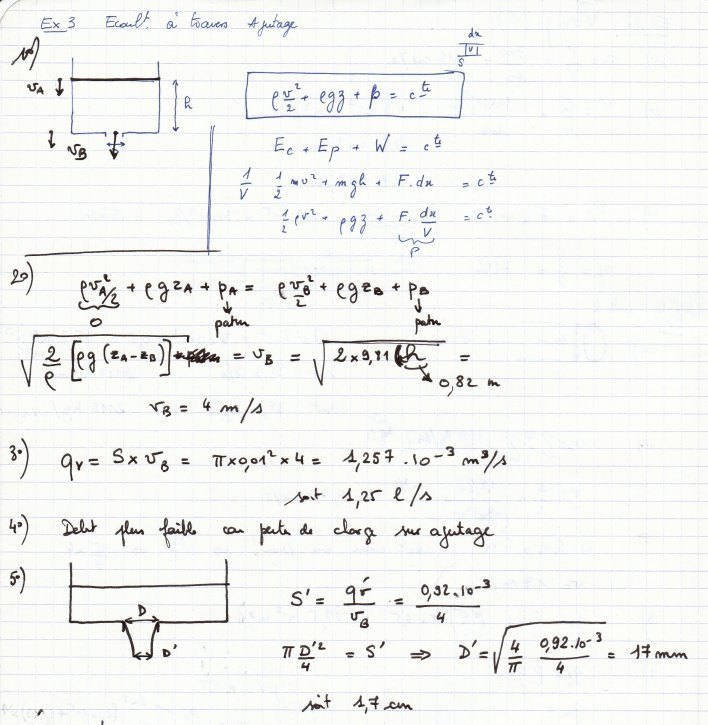 Ex 3 Ecoult. à travers Ajutage
1°)
v_A
h
v_B
dx
|V|
S
ρ v²/2 + ρgz + p = c^te
Ec + Ep + W = c^te
1/V 1/2 mv² + mgh + F.dx = c^te
1/2 ρv² + ρgz + F. dx/V = c^te
p
2°) ρ v_A²/2 + ρg z_A + p_A = ρ v_B²/2 + ρg z_B + p_B
0 patm patm
√(2/ρ [ρg (z_A - z_B)]) = v_B = √(2 x 9,81 h) =
0,82 m
v_B = 4 m/s
3°) qv = S x v_B = π x 0,01² x 4 = 1,257 . 10⁻³ m³/s
soit 1,25 l/s
4°) Debit plus faible car perte de charge sur ajutage
5°)
D
D'
S' = qv'/v_B = 0,92.10⁻³/4
π D'²/4 = S' ⇒ D' = √(4/π 0,92.10⁻³/4) = 17 mm
soit 1,7 cm